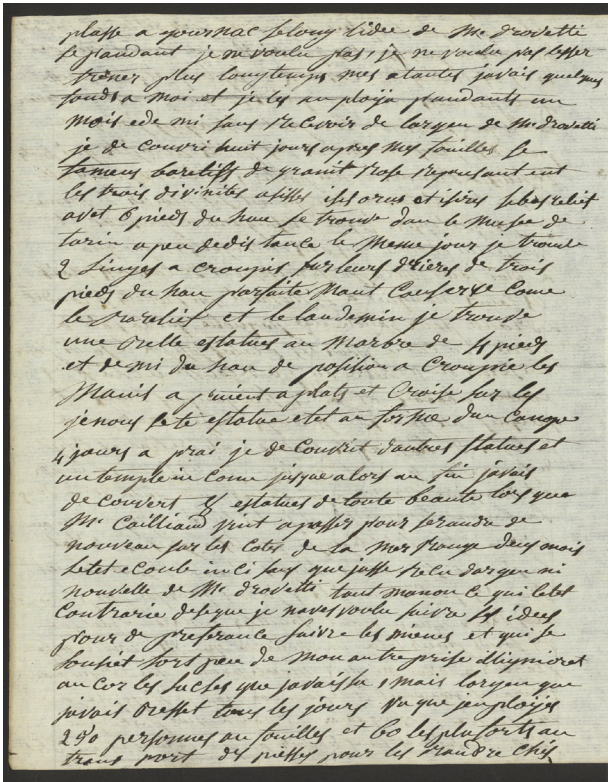 plasse a gournac selong lidee de Mr drovetti
se pandant je ne voulu pas, je ne voulu pas lesser
trener plus longtemps mes atantes javais quelques
fonds a moi et je les anploja pandants un
mois ede mi sans recevoir de largen de Mr drovetti
je de couvri huit jours apres mes fouilles se
fameux bareliff de granit rose represantent
les trois divinites asisses isis orus et isiris se bas relief
avet 6 pieds du hau se trouve dan le musee de
turin a peu de distance le meme jour je trouve
2 singes a croupis sur leurs drieres de trois
pieds du hau parfaite mant conserve come
le barelief et le laudemin je trouve
une belle estatues au marbre de 4 pieds
et demi du hau de position a croupie les
mains a plats et croise sur les
jenous sete estatue etet an forme dun canope
4 jours a prai je de couvrit dautres statues et
un temple in come jusque alors an fin javais
de couvert estatues de toute beaute lors que
Mr Cailliaud vint a passer pour serandre de
nouveau sur les cotes de la mer rouge deux mois
setet ecoule in ci sans que jusse recu dargen ni
nouvelle de Mr drovetti tout manon ce qui letet
contrarie de se que je naves voulu suivre ses idees
pour de preferance suivre les mienes et qui se
sousiet fort peu de mon antre prise il ignioret
an cor les sucses que javais su, mais largen que
javais besset tous les jours vu que jenployes
290 personnes au fouilles et 60 les plus forts au
trans port des piesses pour les randre ches